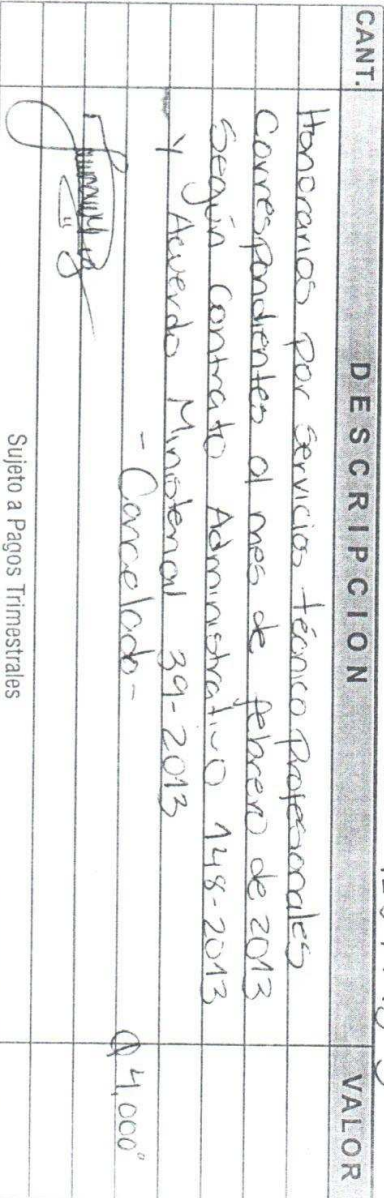 CANT. DESCRIPCION VALOR
Honorarios por servicios técnico Profesionales
Correspondientes al mes de febrero de 2013
Según Contrato Administrativo 148-2013
Y Acuerdo Ministerial 39-2013
- Cancelado - Q 4,000°
Sujeto a Pagos Trimestrales